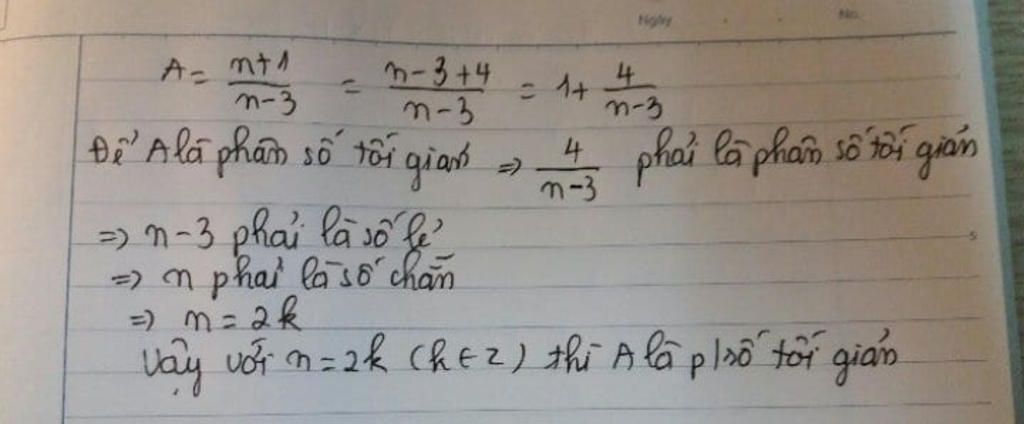 Ngày No.
A = \frac{n+1}{n-3} = \frac{n-3+4}{n-3} = 1 + \frac{4}{n-3}
Để A là phân số tối giản => \frac{4}{n-3} phải là phân số tối giản
=> n-3 phải là số lẻ
=> n phải là số chẵn
=> n = 2k
Vậy với n = 2k (k ∈ Z) thì A là p/số tối giản